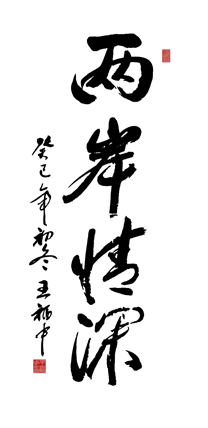 两岸情深
癸巳年初冬王福中